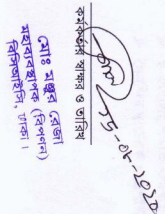 কর্মকর্তার স্বাক্ষর ও তারিখ
মোঃ মঞ্জুর রেজা
মহাব্যবস্থাপক (বিপণন)
বিসিআইসি, ঢাকা।